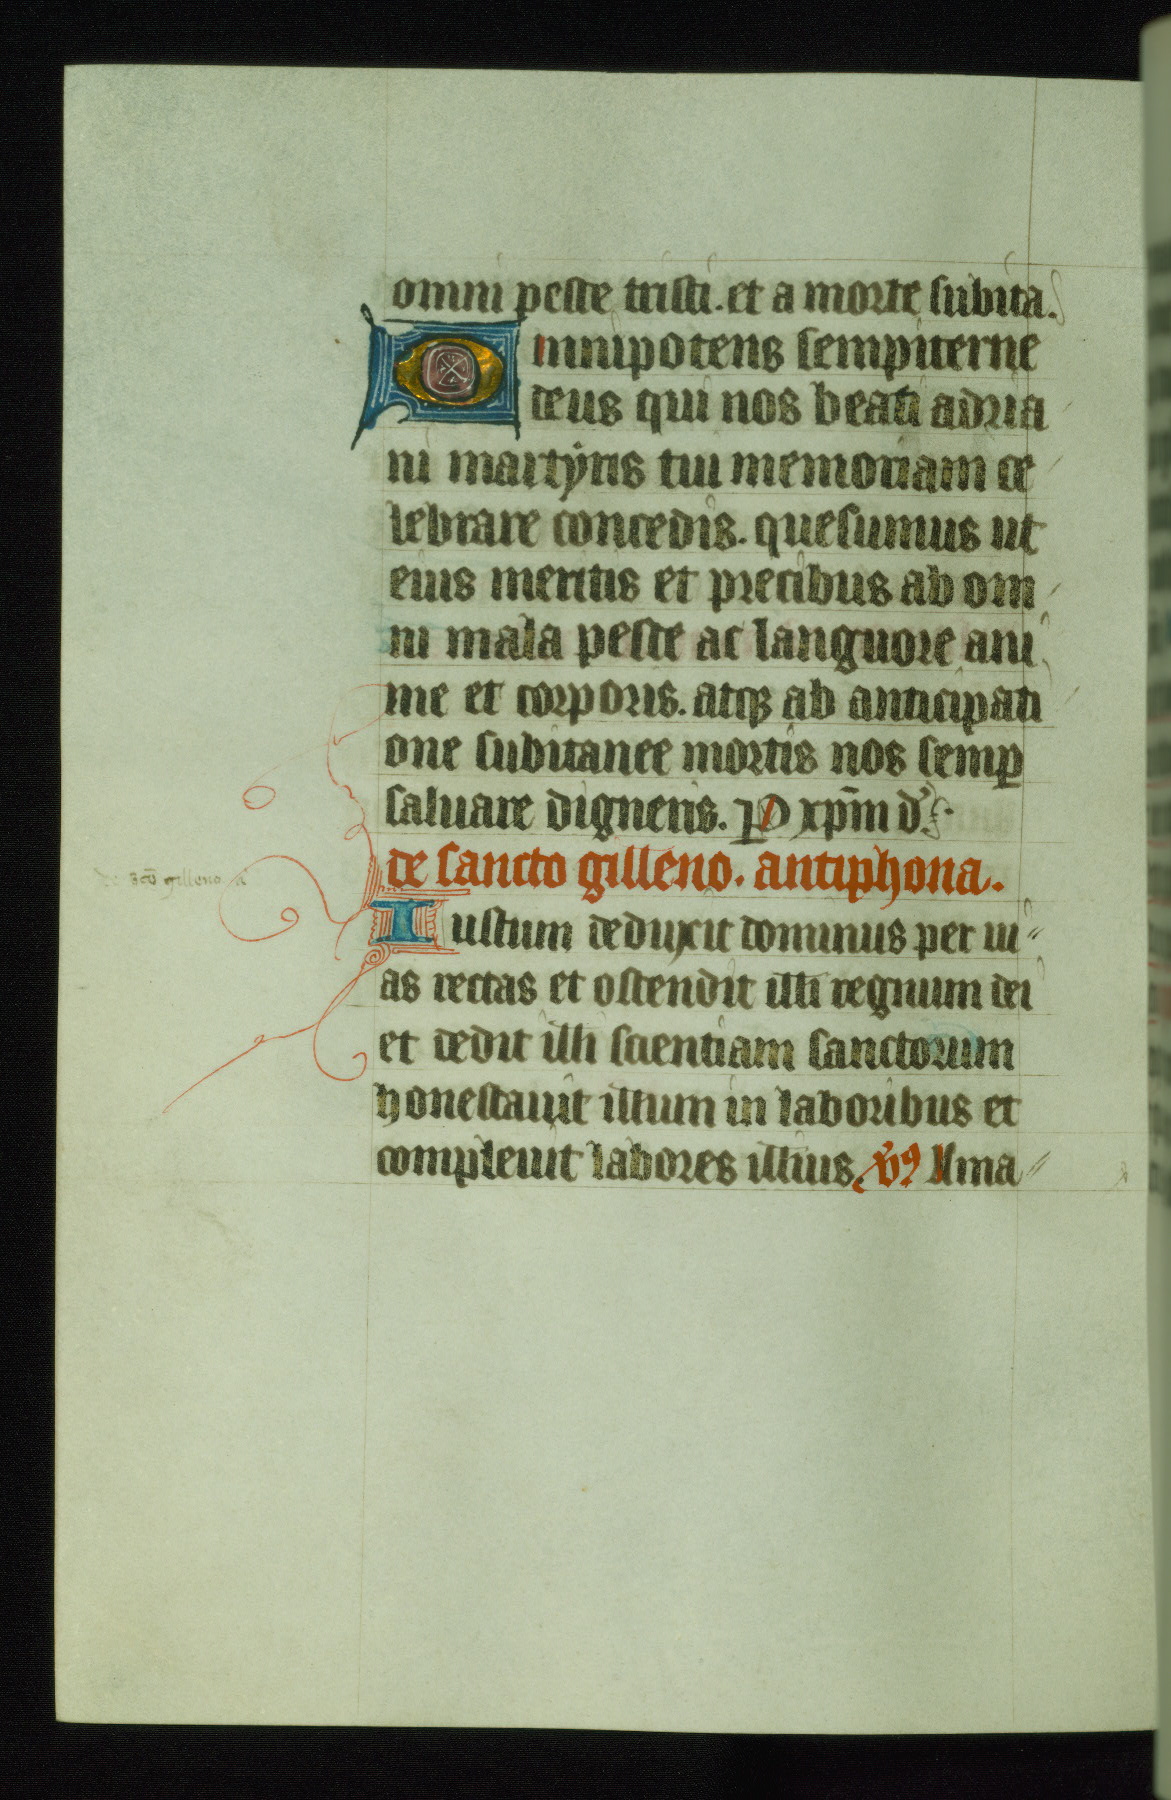 omni peste tristi. et a morte subita.
Omnipotens sempiterne
deus qui nos beati adria
ni martyris tui memoriam ce
lebrare concedis. quesumus ut
eius meritis et precibus ab om
ni mala peste ac languore ani
me et corporis. atqꝫ ab anticipati
one subitanee mortis nos semꝑ
saluare digneris. P xp̄m d̛.
de sancto gilleno. antiphona.
de sc̄o gilleno a
Iustum deduxit dominus per ui
as rectas et ostendit illi regnum dei
et dedit illi scientiam sanctorum
honestauit illum in laboribus et
compleuit labores illius. v̛ꝯ Ama